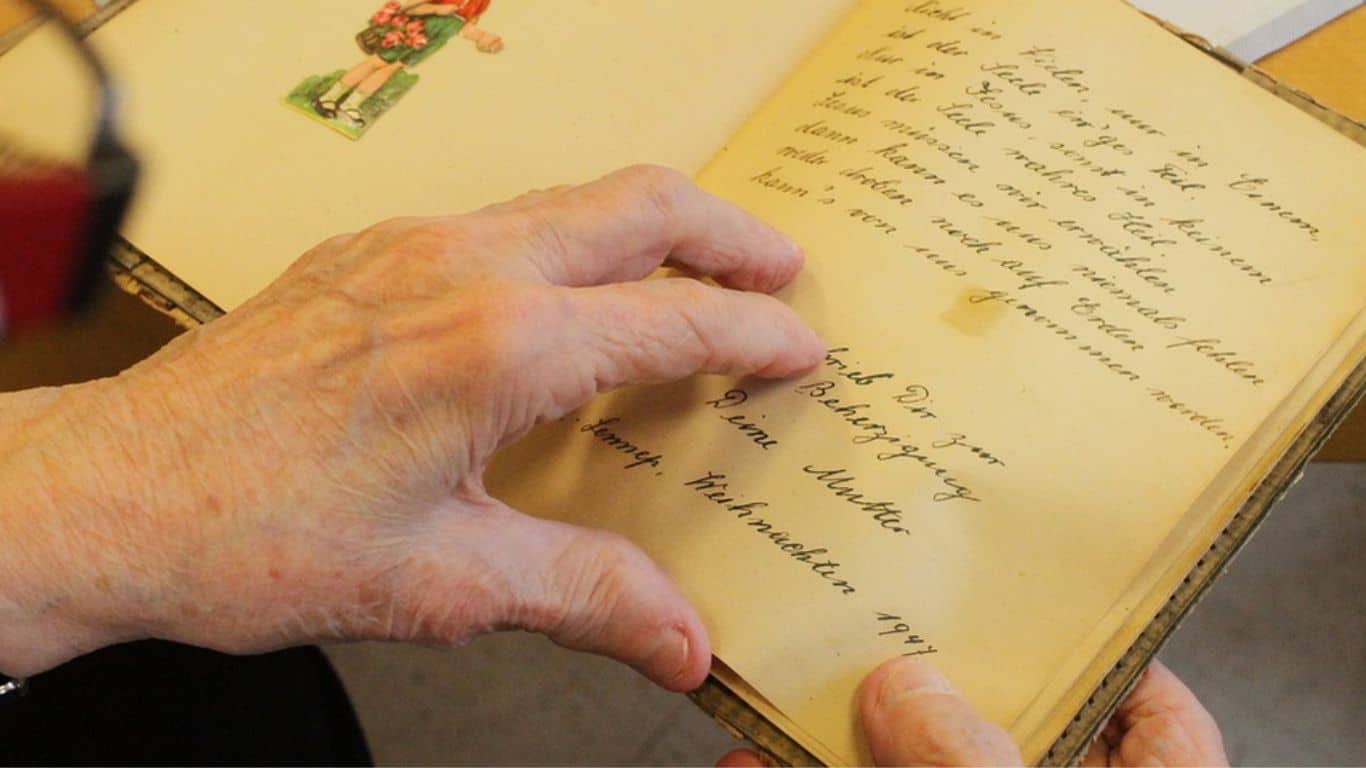 Nicht in Vielen, nur in Einem,
ist der Seele ew'ges Teil.
Nur in Jesus, sonst in keinem
ist der Seele wahres Heil
Jesus müssen wir erwählen
dann kann es uns niemals fehlen
weder droben noch auf Erden
kann's von uns genommen werden.
rieb Dir zur
Beherzigung
Deine Mutter
Lennep, Weihnachten 1947